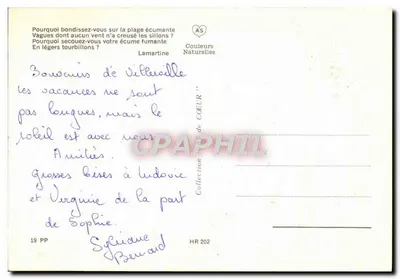 Pourquoi bondissez-vous sur la plage écumante
Vagues dont aucun vent n'a creusé les sillons ?
Pourquoi secouez-vous votre écume fumante
En légers tourbillons ?
Lamartine
AS
Couleurs
Naturelles
Souvenirs de Villerville
les vacances ne sont
pas longues, mais le
soleil est avec nous
Amitiés.
grosses bises à Ludovic
et Virginie de la part
de Sophie.
Sylviane
Bernard
Collection de CŒUR"
CPAPHIL.com
19 PP
HR 202